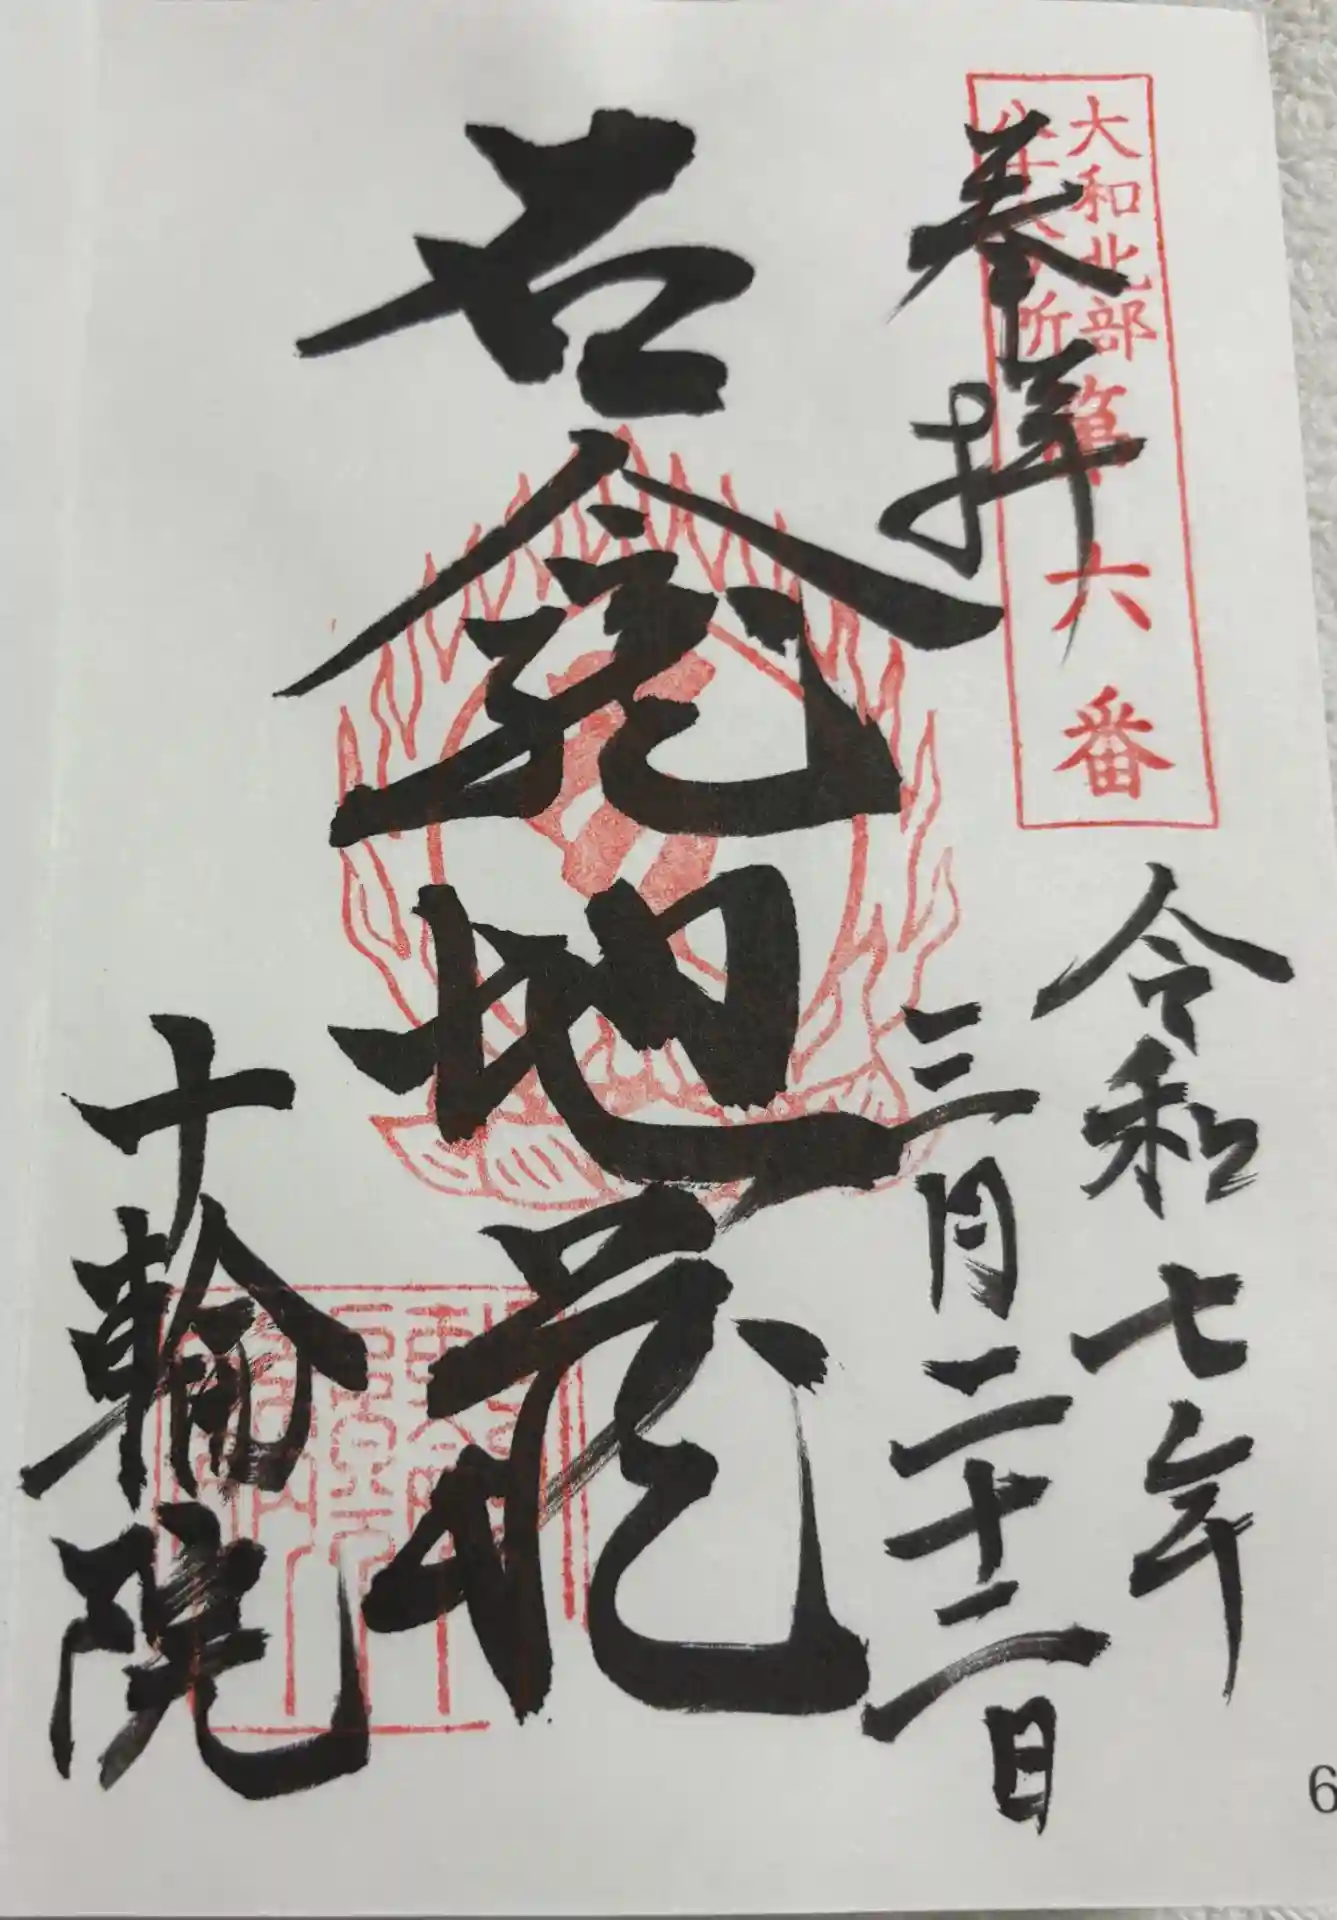 大和北部
八十八ヶ所
第六番
奉拝
令和七年
三月二十二日
石龕地蔵
十輪院
6